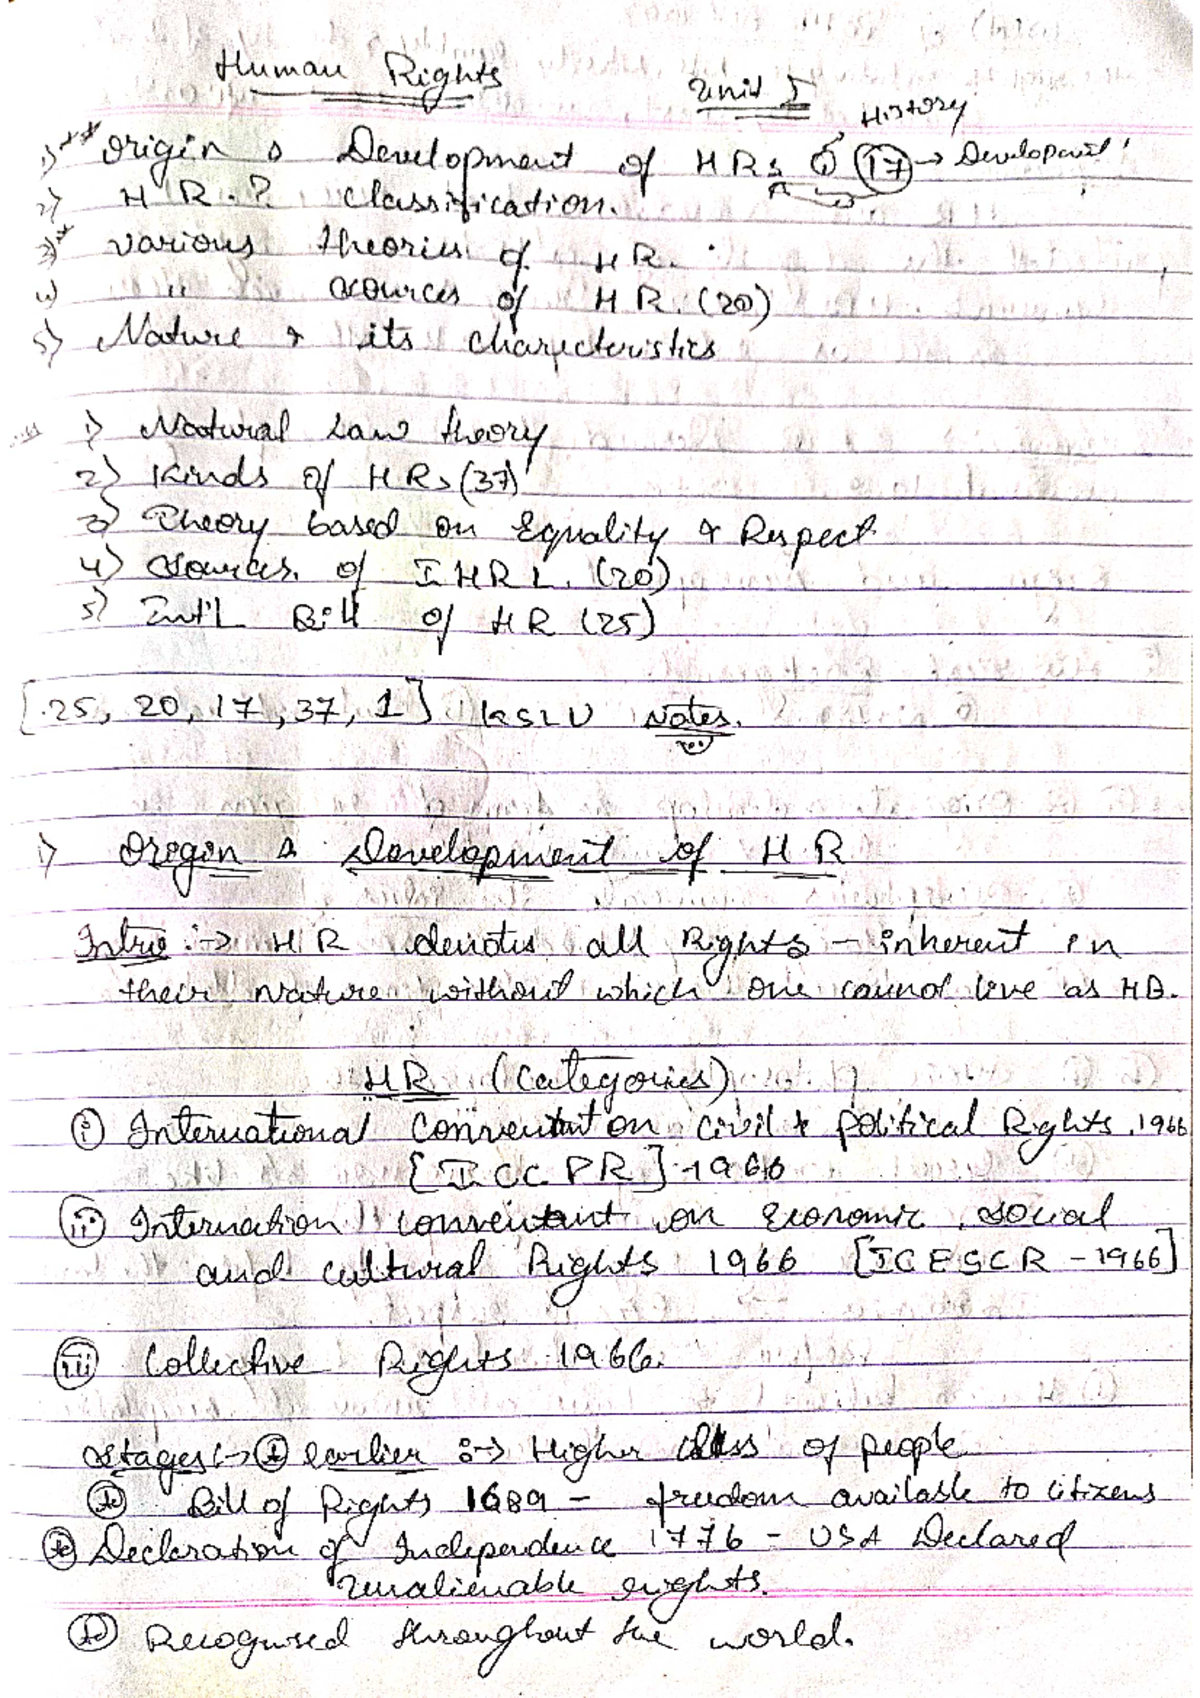 Human Rights Unit I
History
1) Origin & Development of HRs (17) → Development
2) H R.? classification.
3) various theories of HR.
4) " sources of HR. (20)
5) Nature & its charecteristics
1) Natural Law theory
2) Kinds of HRs (37)
3) Theory based on Equality & Respect.
4) Sources. of IHRL. (20)
5) Int'L Bill of HR (25)
[25, 20, 17, 37, 1] KSLU Notes.
1) Origin & Development of HR
Intro :→ HR denotes all Rights - inherent in
their nature without which one cannot live as HB.
HR (Categories)
(i) International on civil & political Rights. 1966
[ICCPR] - 1966
(ii) Internation on Economic, social
and cultural Rights 1966 [ICESCR - 1966]
(iii) Collective Rights 1966.
Stages :→ earlier :→ Higher class of people
Bill of Rights 1689 - freedom available to citizens
Declaration of Independence 1776 - USA Declared
unalienable rights.
Recognised throughout the world.